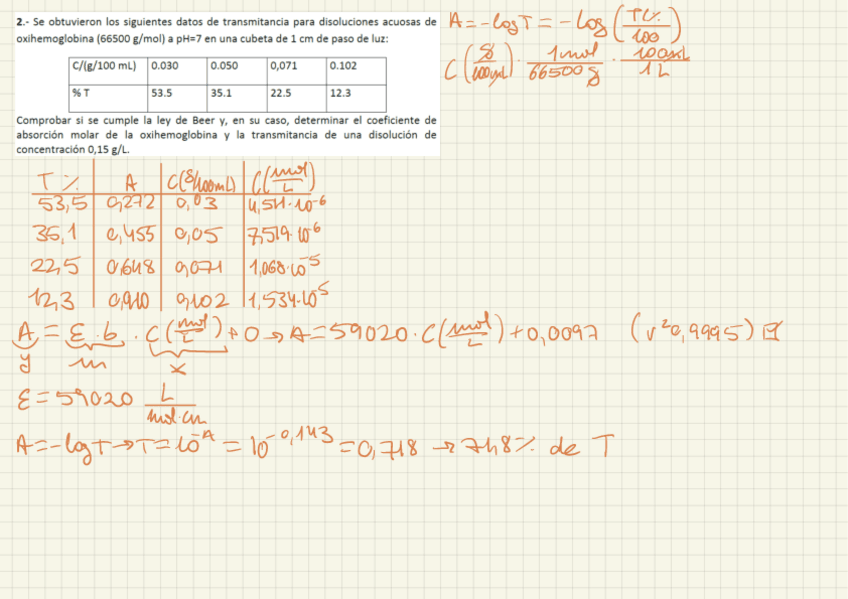 2.- Se obtuvieron los siguientes datos de transmitancia para disoluciones acuosas de
oxihemoglobina (66500 g/mol) a pH=7 en una cubeta de 1 cm de paso de luz:
C/(g/100 mL) 0.030 0.050 0,071 0.102
% T 53.5 35.1 22.5 12.3
Comprobar si se cumple la ley de Beer y, en su caso, determinar el coeficiente de
absorción molar de la oxihemoglobina y la transmitancia de una disolución de
concentración 0,15 g/L.
A = -log T = -log (T% / 100)
C (g / 100mL) · 1 mol / 66500 g · 100 mL / 1 L
T % A C(g/100mL) C(mol/L)
53,5 0,272 0,03 4,511·10⁻⁶
35,1 0,455 0,05 7,519·10⁻⁶
22,5 0,648 0,071 1,068·10⁻⁵
12,3 0,910 0,102 1,534·10⁻⁵
A = ε · b · C (mol/L) + 0 → A = 59020 · C (mol/L) + 0,0097 (r² 0,9995)
y m x
ε = 59020 L / mol·cm
A = -log T → T = 10⁻ᴬ = 10^-0,143 = 0,718 → 71,8% de T